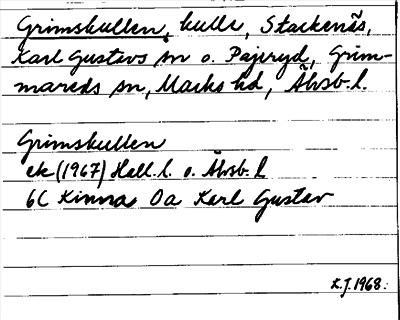 Grimskullen, kulle, Stackenäs,
Karl Gustavs sn o. Pajeryd, Grim-
mareds sn, Marks hd, Älvsb. l.
Grimskullen
ek (1967) Hall. l. o. Älvsb. l
6C Kinna 0a Karl Gustav
K.J. 1968.